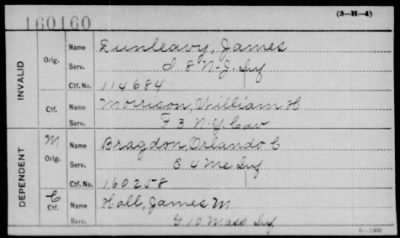 160160
(3-H-4)
INVALID
Orig. Name Dunleavy, James
Serv. I 8 N-J. Inf
Ctf. No. 114684
Ctf. Name Morrison, William H
Serv. F 3 N-Y Cav
DEPENDENT
M Orig. Name Bragdon, Orlando C
Serv. C 4 Me Inf
Ctf. No. 160258
C Ctf. Name Hall, James M
Serv. G 10 Mass Inf